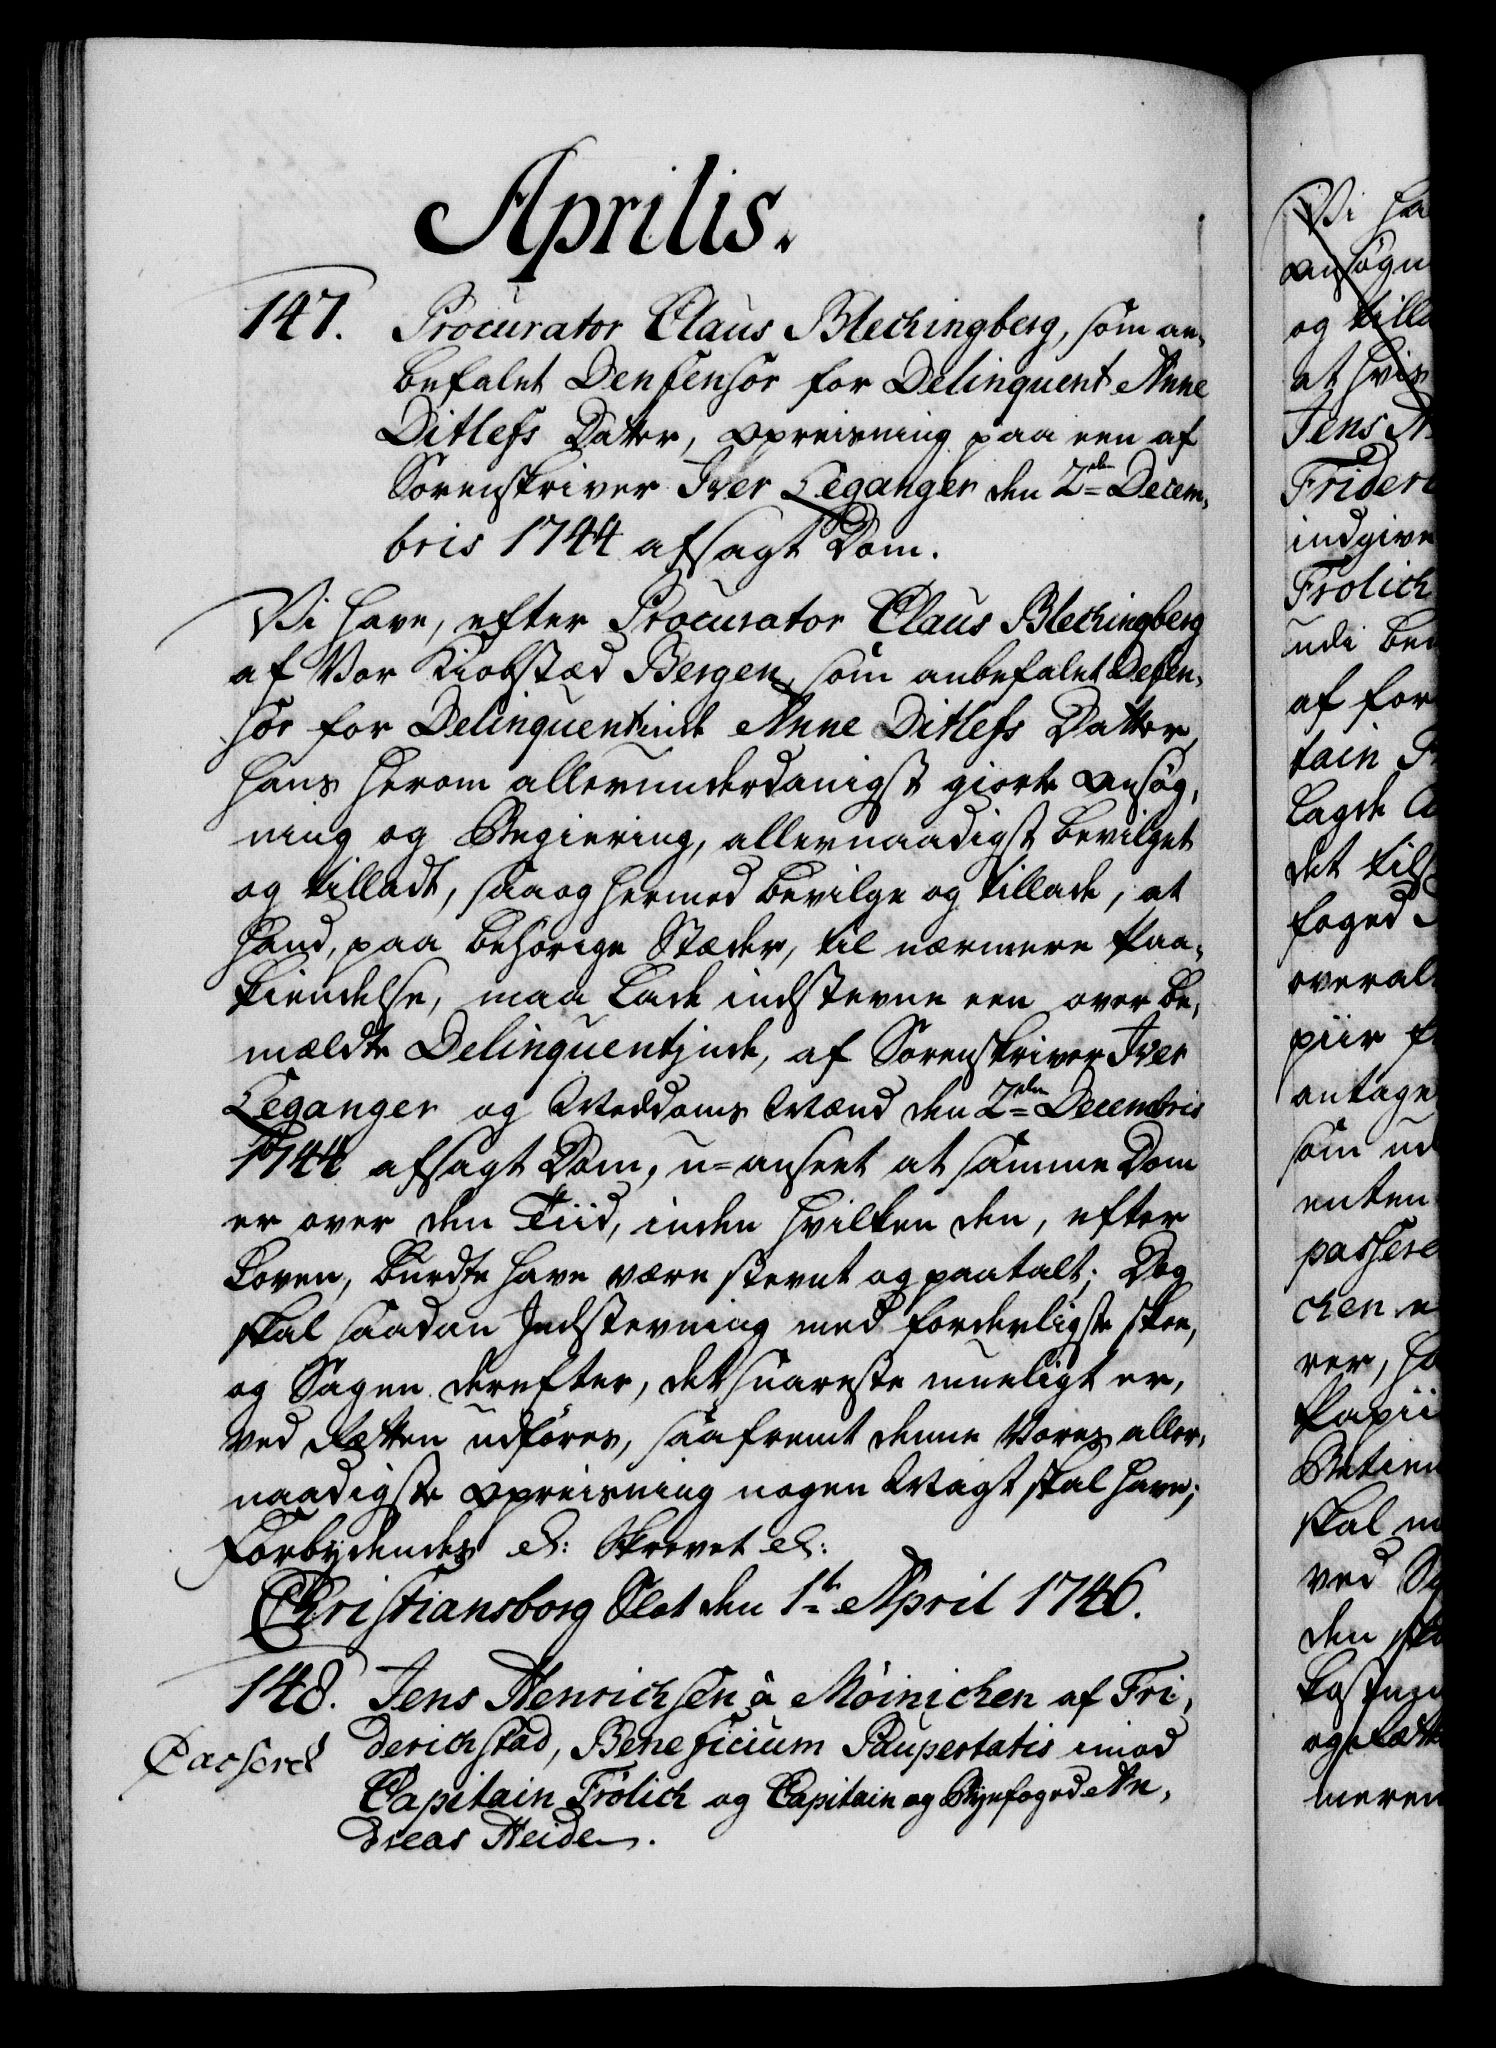 Aprilis.
147. Procurator Claus Blechingberg, som an-
befalet Denfensor for Delinquent Anne
Ditlefs Datter, Opreisning paa een af
Sorenskriver Iver Leganger den 2den Decem-
bris 1744 afsagt Dom.
Vi have, efter Procurator Claus Blechingberg
af Vor Kiøbstæd Bergen, som anbefalet Defen-
sor for Delinquentinde Anne Ditlefs Datter,
hans herom allerunderdanigst giorte Ansøg-
ning og Begiering, allernaadigst bevilget
og tilladt, saa og hermed bevilge og tillade, at
hand, paa behørige Stæder, til nærmere Paa-
kiendelse, maa lade indstevne een over be-
mældte Delinquentinde, af Sorenskriver Iver
Leganger og Meddoms Mænd den 2den Decembris
1744 afsagt Dom, u-anseet at samme Dom
er over den Tiid, inden hvilken den, efter
Loven, burdte have være stevnt og paatalt; Dog
skal saadan Indstevning med forderligste skee,
og Sagen derefter, det snareste mueligt er,
ved Retten udføres, saafremt denne Vores aller-
naadigste Opreisning nogen Magt skal have;
Forbydendes &: Skrevet &:
Christiansborg Slot den 1te April 1746.
148. Jens Henrichsen à Möinichen af Fri-
derichstad, Beneficium Paupertatis imod
Passered
Capitain Frölich og Capitain og Byefoged An-
dreas Heide.
Vi ha
Ansøgn
og till
at hvis
Jens
Frideri
indgive
Frölich
udi
af for
tain
lagde
det til
foged
overal
piir
antage
som ud
enten
passere
chen
rer,
Papii
Betien
skal
ved
den
og
meren